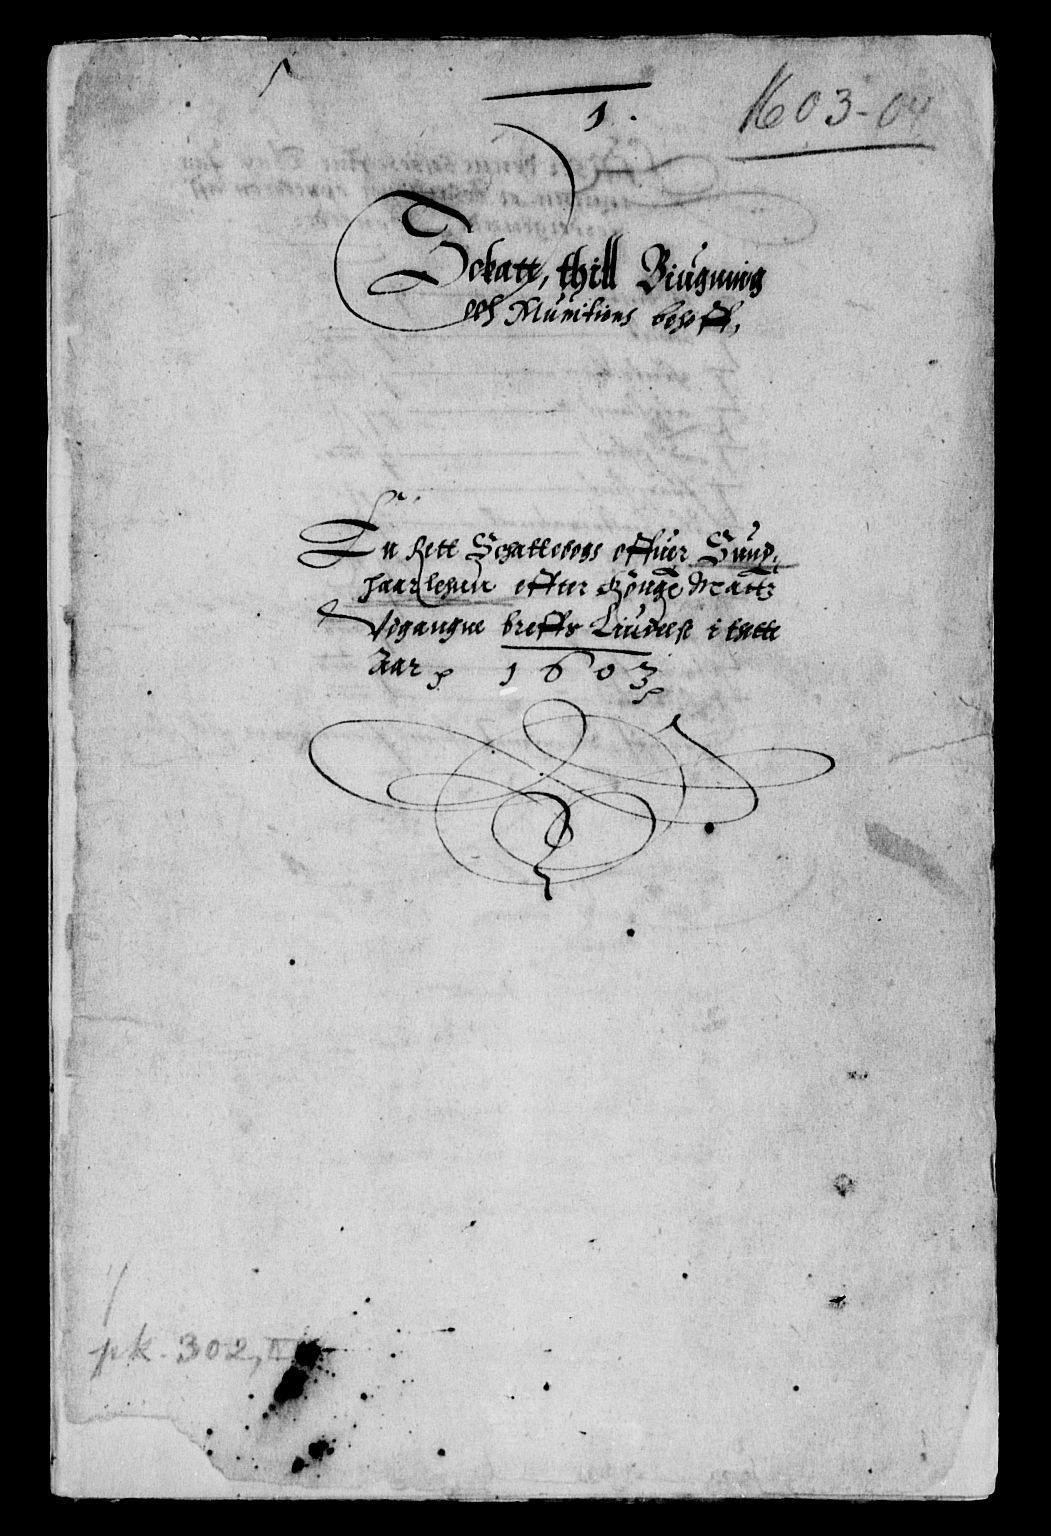 1.
1603-04
Schatt, thill Biugning
och Munitions behoff,
En Rett Schattebogs offuer Sund,
haarlehnn efter Kong: Matt:
Vdgangne breffs Liudelse i thette
Aar, 1603,
pk. 302, IV